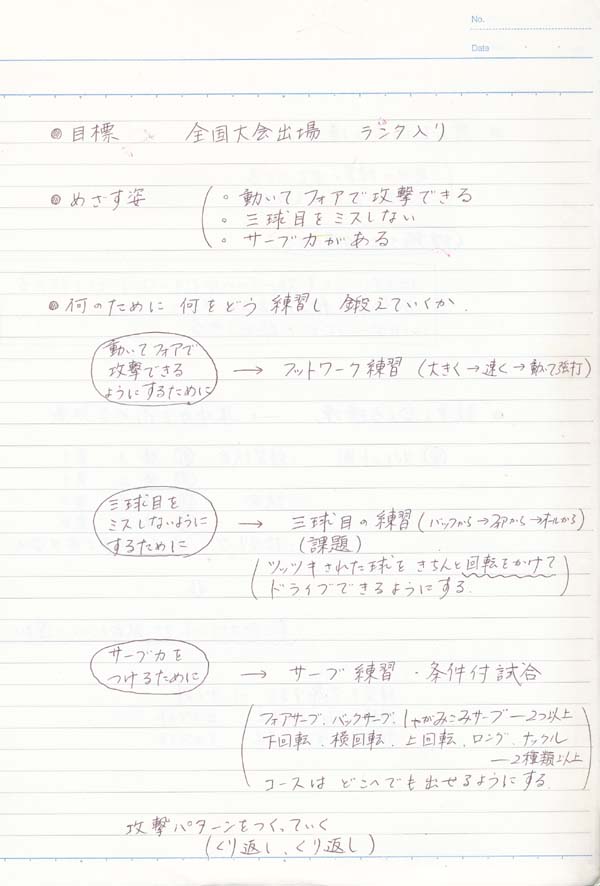 No.
Data
◎ 目標 全国大会出場 ランク入り
◎ めざす姿
。動いてフォアで攻撃できる
。三球目をミスしない
。サーブ力がある
◎ 何のために 何をどう 練習し 鍛えていくか.
動いてフォアで
攻撃できる
ようにするために
→ フットワーク練習 (大きく→速く→動いて強打)
三球目を
ミスしないように
するために
→ 三球目の練習 (バックから→フォアから→オールから)
(課題)
(ツッツキされた球を きちんと回転をかけて
ドライブできるようにする.)
サーブ力を
つけるために
→ サーブ練習・条件付試合
(フォアサーブ、バックサーブ、しゃがみこみサーブ—2つ以上
下回転、横回転、上回転、ロング、ナックル
—2種類以上
コースは どこへでも出せるようにする.)
攻撃パターンをつくっていく
(くり返し、くり返し)